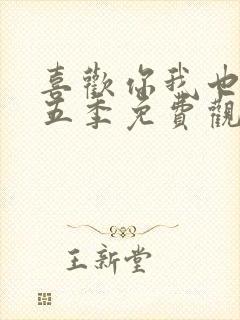 喜歡你我也
五季免費觀
王新堂